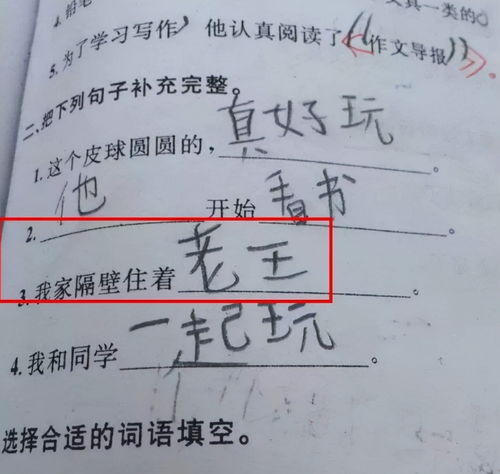 4.铅笔
文具一类的
5.为了学习写作,他认真阅读了《作文导报》。
二、把下列句子补充完整。
1.这个皮球圆圆的,真好玩。
2.他开始看书。
3.我家隔壁住着老王。
4.我和同学一起玩。
选择合适的词语填空。